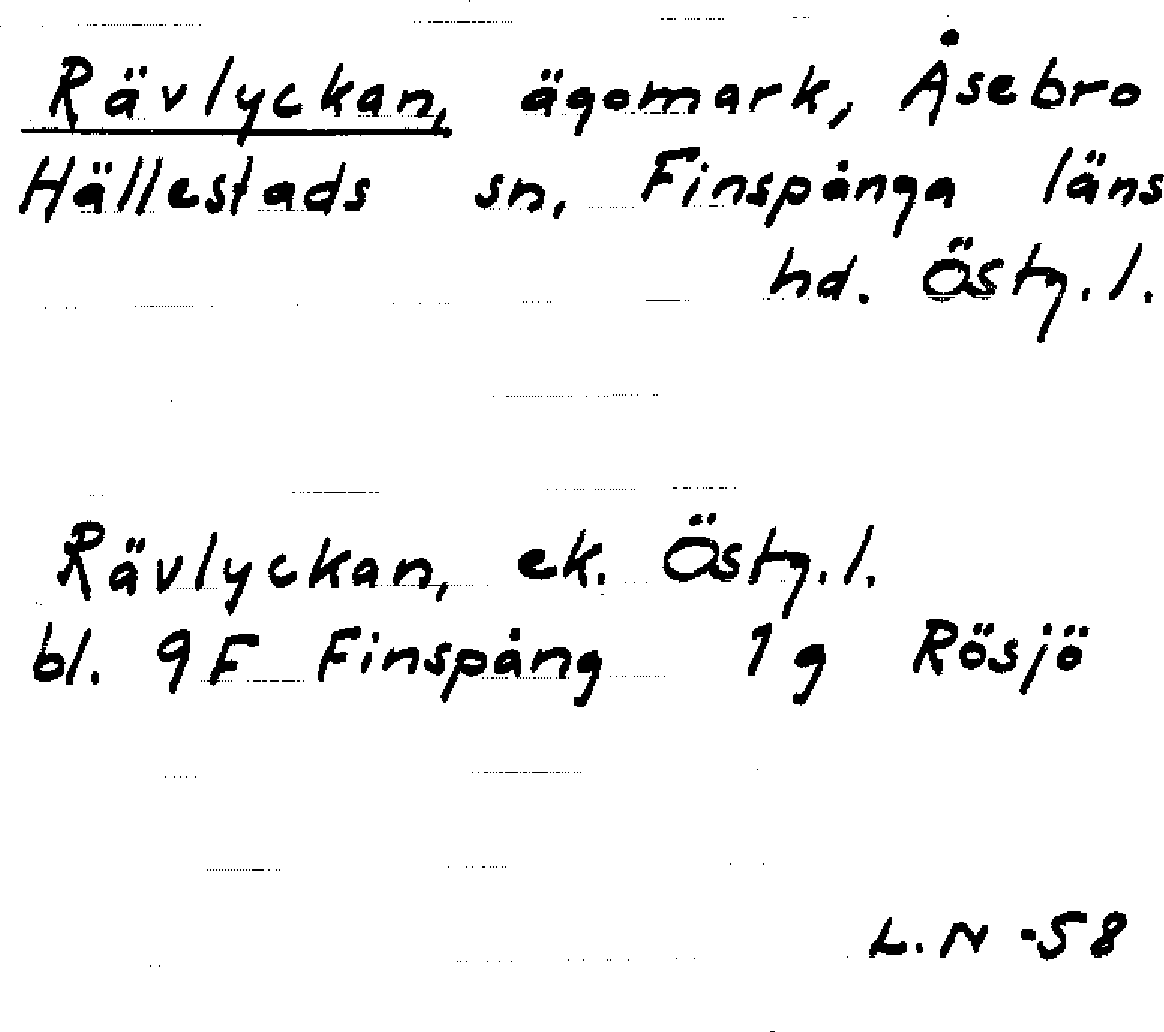 Rävlyckan, ägomark, Åsebro
Hällestads sn, Finspånga läns
hd. Östg.l.
Rävlyckan, ek. Östg.l.
bl. 9F Finspång 1g Rösjö
L.N -58